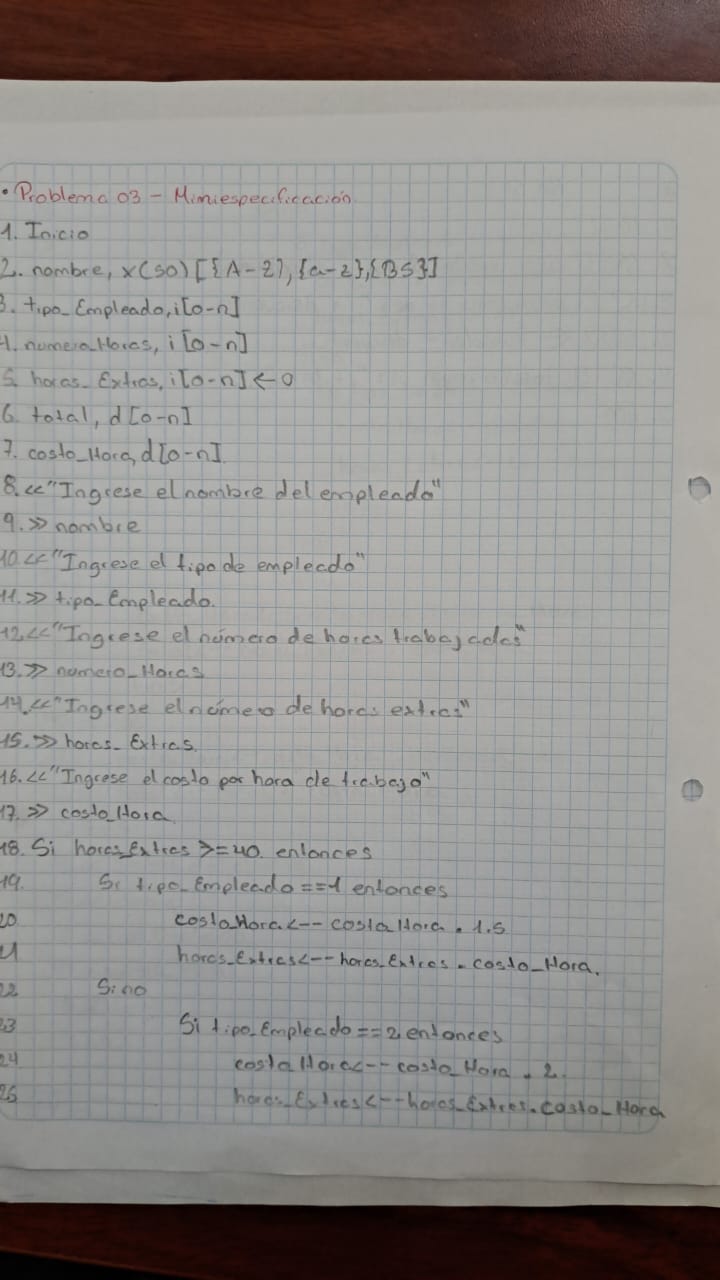 • Problema 03 - Miniespecificación
1. Inicio
2. nombre, x(50)[{A-Z},{a-z},{BS}]
3. tipo_Empleado, i[0-n]
4. numero_Horas, i[0-n]
5. horas_Extras, i[0-n] ← 0
6. total, d[0-n]
7. costo_Hora, d[0-n]
8. << "Ingrese el nombre del empleado"
9. >> nombre
10. << "Ingrese el tipo de empleado"
11. >> tipo_Empleado.
12. << "Ingrese el número de horas trabajadas"
13. >> numero_Horas
14. << "Ingrese el número de horas extras"
15. >> horas_Extras.
16. << "Ingrese el costo por hora de trabajo"
17. >> costo_Hora
18. Si horas_Extras >= 40 entonces
19. Si tipo_Empleado == 1 entonces
20 costo_Hora <-- costo_Hora * 1.5
21 horas_Extras <-- horas_Extras * costo_Hora.
22 Sino
23 Si tipo_Empleado == 2 entonces
24 costo_Hora <-- costo_Hora * 2
25 horas_Extras <-- horas_Extras * costo_Hora